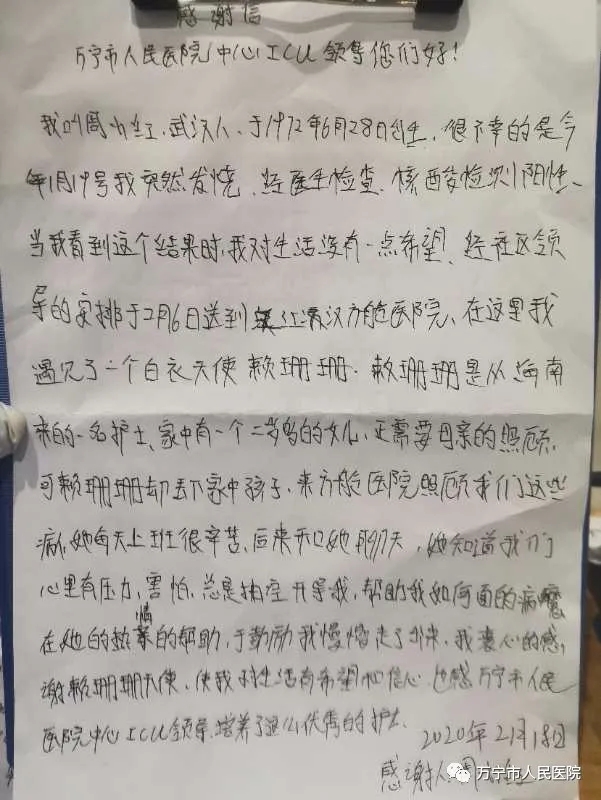 感谢信
万宁市人民医院中心ICU领导您们好！
我叫周 红，武汉人，于1972年6月28日出生，很不幸的是今
年1月19号我突然发烧、经医生检查、核酸检测阳性、
当我看到这个结果时，我对生活没有一点希望、经社区领
导的安排于2月6日送到 江汉方舱医院、在这里我
遇见了一个白衣天使赖珊珊．赖珊珊是从海南
来的一名护士、家中有一个二岁多的女儿，正需要母亲的照顾，
可赖珊珊却丢下家中孩子、来方舱医院照顾我们这些
病，她每天上班很辛苦、后来和她聊天，她知道我们
心里有压力、害怕、总是抽空开导我，帮助我如何面的病魔
在她的热情的帮助、于鼓励我慢慢走了出来，我衷心的感
谢赖珊珊天使、使我对生活有希望和信心．也感万宁市人民
医院中心ICU领导、培养了这么优秀的护士．
2020年2月18日
感谢人：周 红
万宁市人民医院